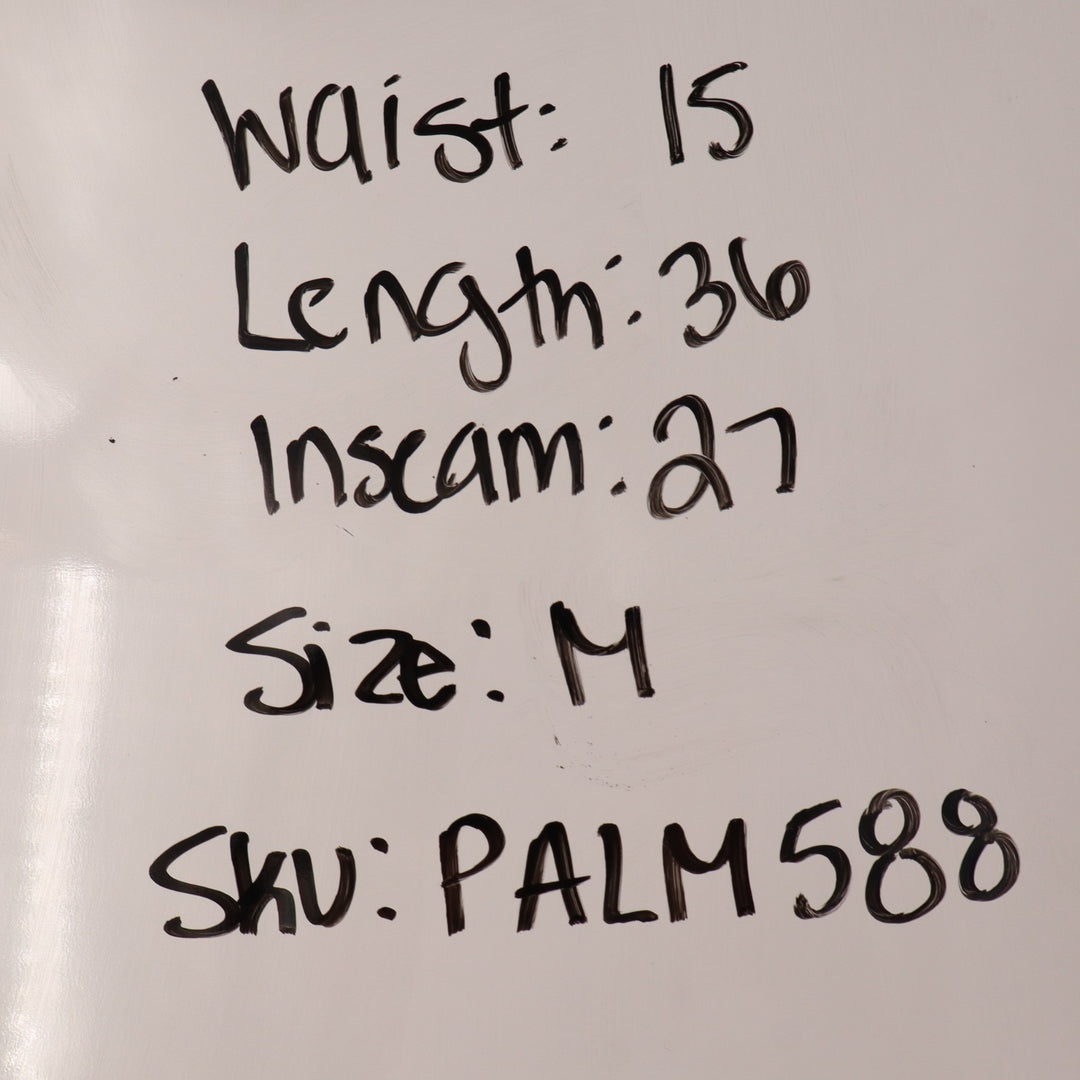 Waist: 15
Length: 36
Inseam: 27
Size: M
SKU: PALM588